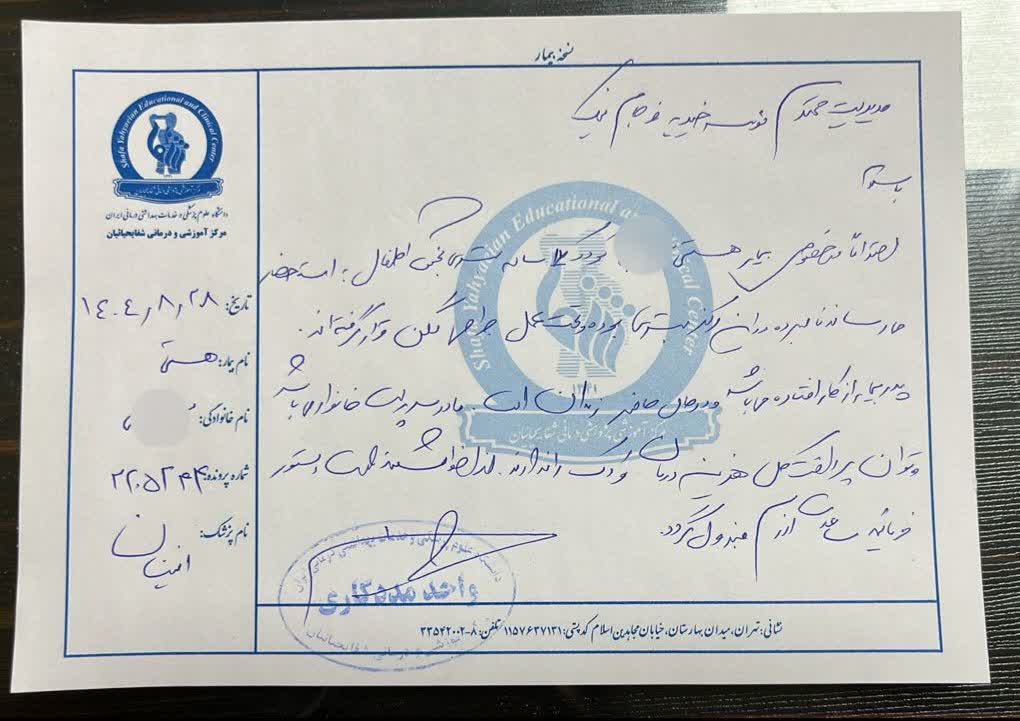 نسخه بیمار
Shafa Yahyaeian Educational and Clinical Center
دانشگاه علوم پزشکی و خدمات بهداشتی درمانی ایران
مرکز آموزشی و درمانی شفایحیائیان
تاریخ: ۱۴۰۴/۸/۲۸
نام بیمار: هستی
نام خانوادگی:
شماره پرونده: ۲۲۰۵۲۴۴
نام پزشک:
مدیریت محترم موسسه خیریه فرجام نیک
با سلام
احتراماً در خصوص بیمار هستی کودک ۱۲ ساله بستری بخش اطفال به استحضار
می‌رساند نامبرده در این مرکز بستری بوده و تحت عمل جراحی لگن قرار گرفته‌اند.
پدر بیمار از کار افتاده می‌باشد و در حال حاضر زندان است. مادر سرپرست خانواده می‌باشد
و توان پرداخت کل هزینه درمان کودک را ندارند. لذا خواهشمند است دستور
فرمائید مساعدت لازم مبذول گردد.
واحد مددکاری
نشانی: تهران، میدان بهارستان، خیابان مجاهدین اسلام کدپستی: ۱۱۵۷۶۳۷۱۳۱ تلفن: ۸-۳۳۵۴۲۰۰۲